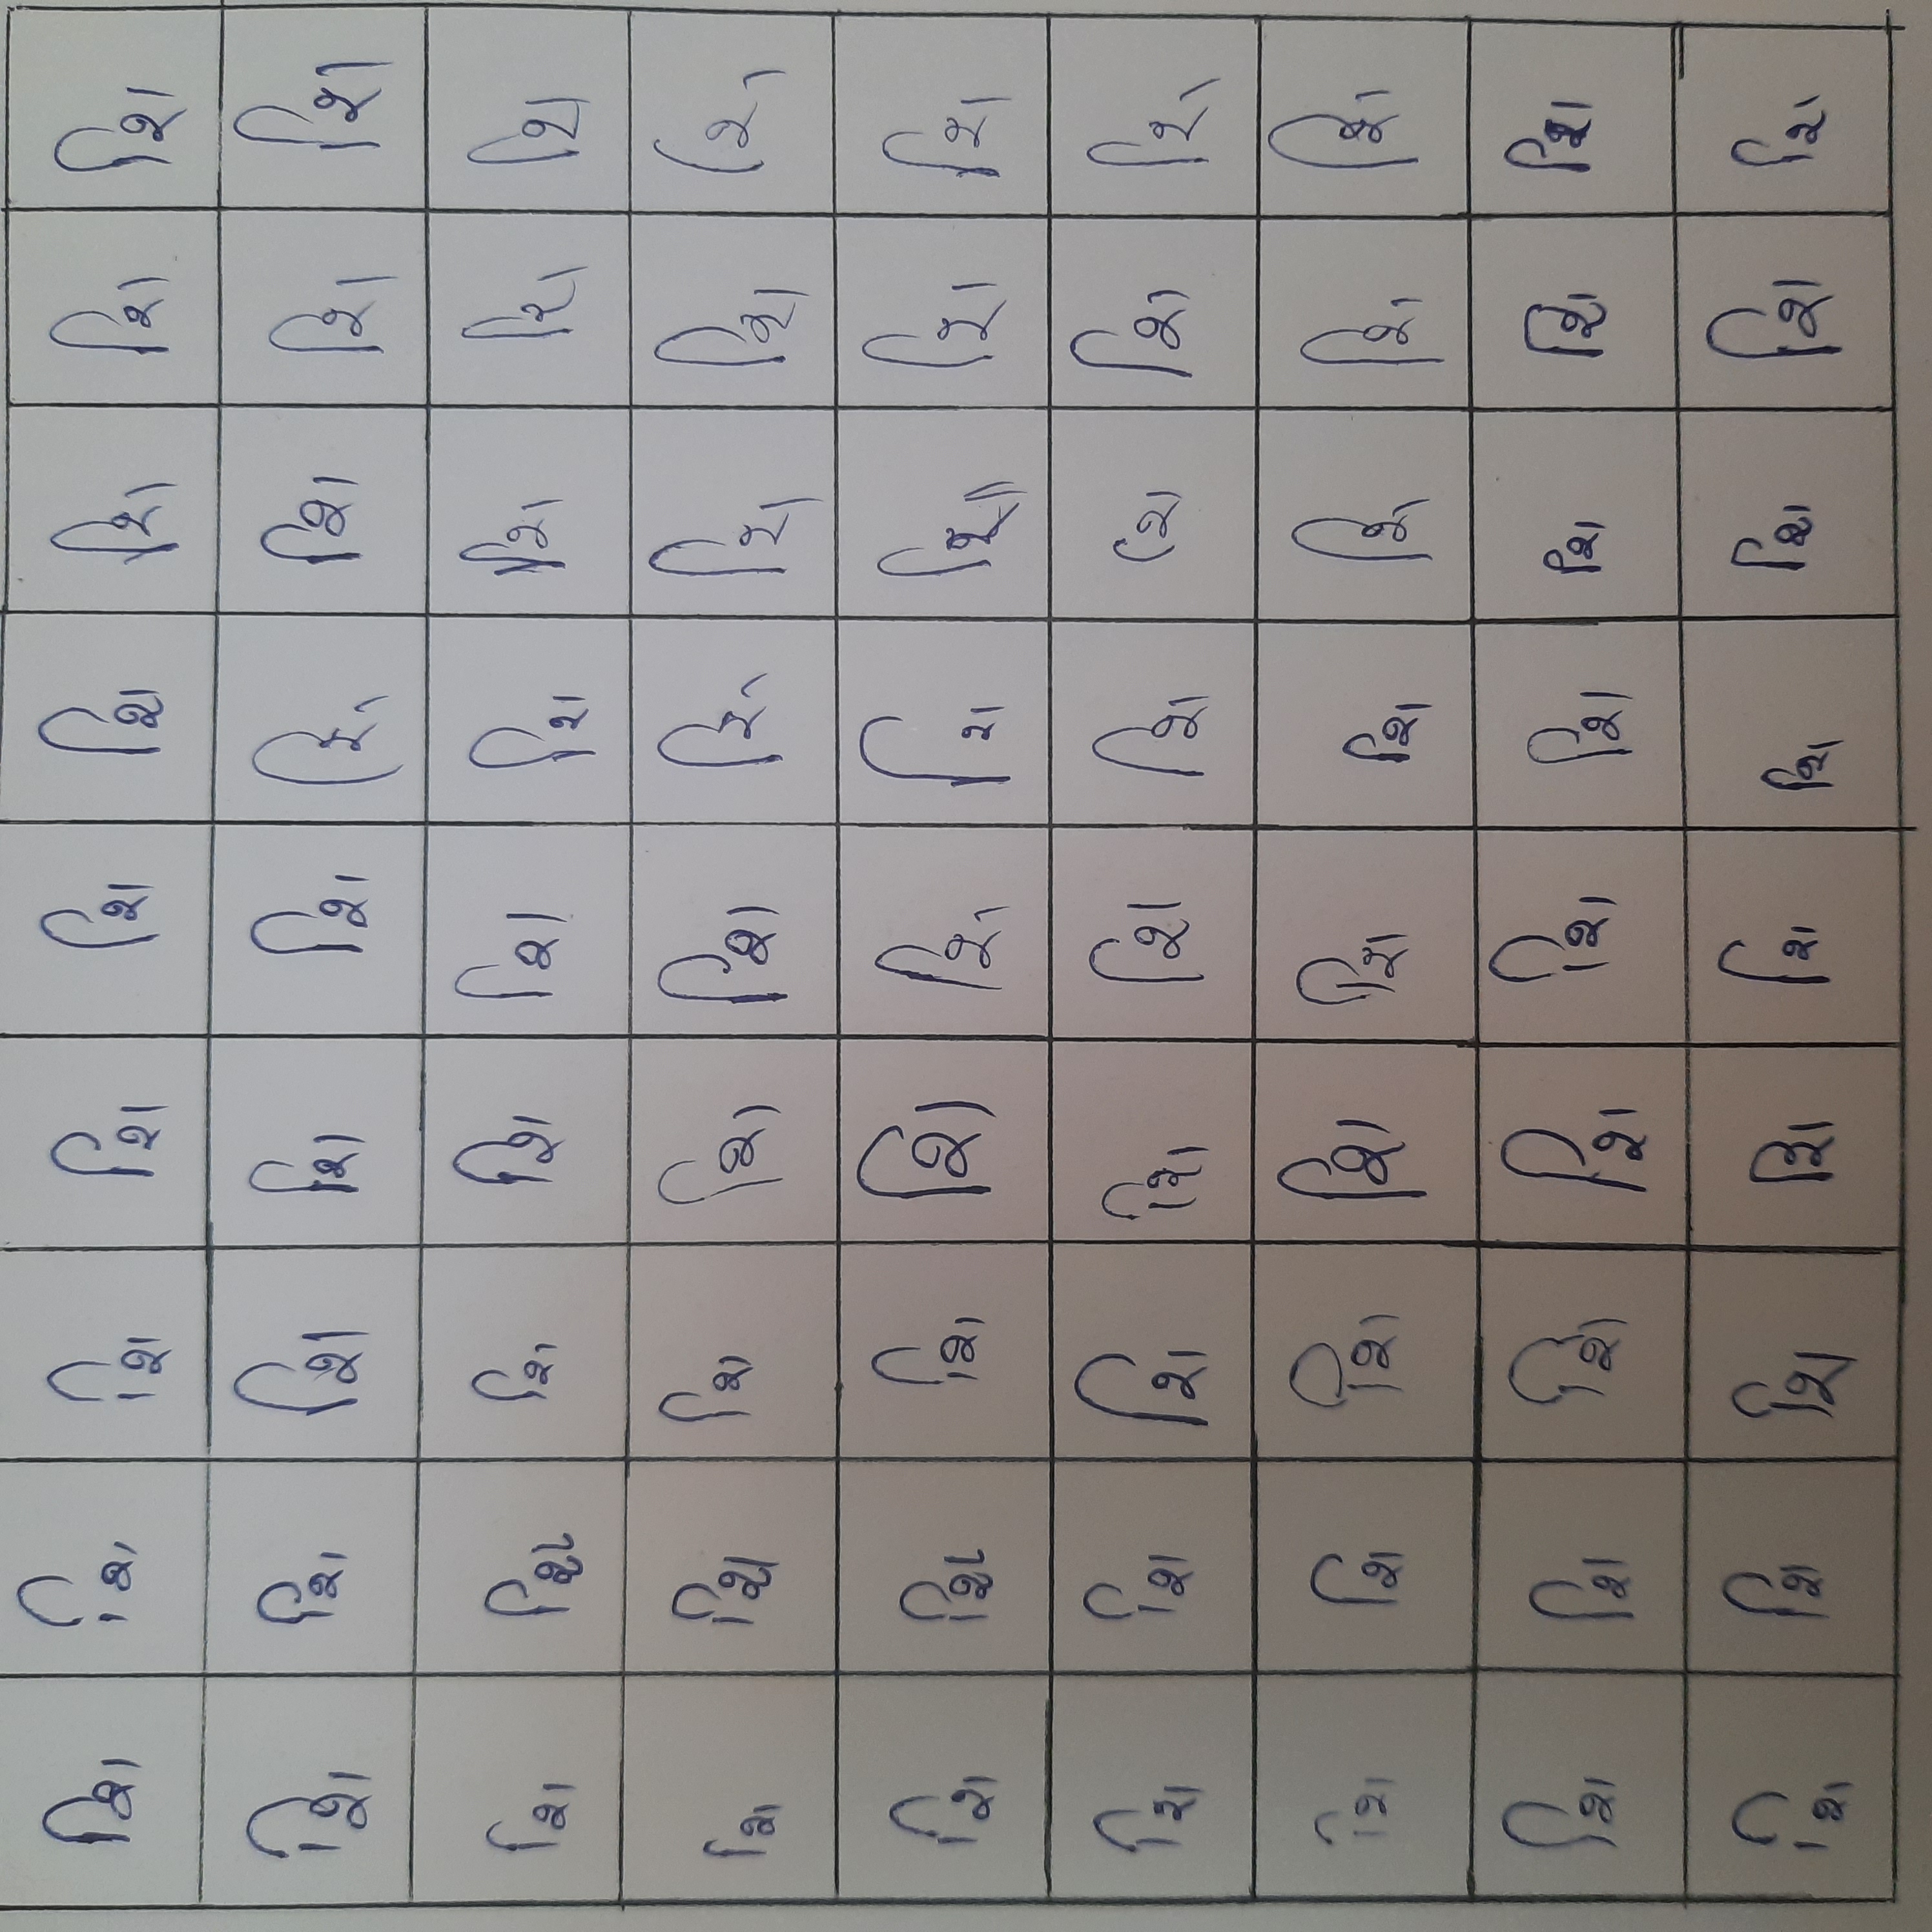 શિ શિ શિ શિ શિ શિ શિ શિ શિ
શિ શિ શિ શિ શિ શિ શિ શિ શિ
શિ શિ શિ શિ શિ શિ શિ શિ શિ
શિ શિ શિ શિ શિ શિ શિ શિ શિ
શિ શિ શિ શિ શિ શિ શિ શિ શિ
શિ શિ શિ શિ શિ શિ શિ શિ શિ
શિ શિ શિ શિ શિ શિ શિ શિ શિ
શિ શિ શિ શિ શિ શિ શિ શિ શિ
શિ શિ શિ શિ શિ શિ શિ શિ શિ